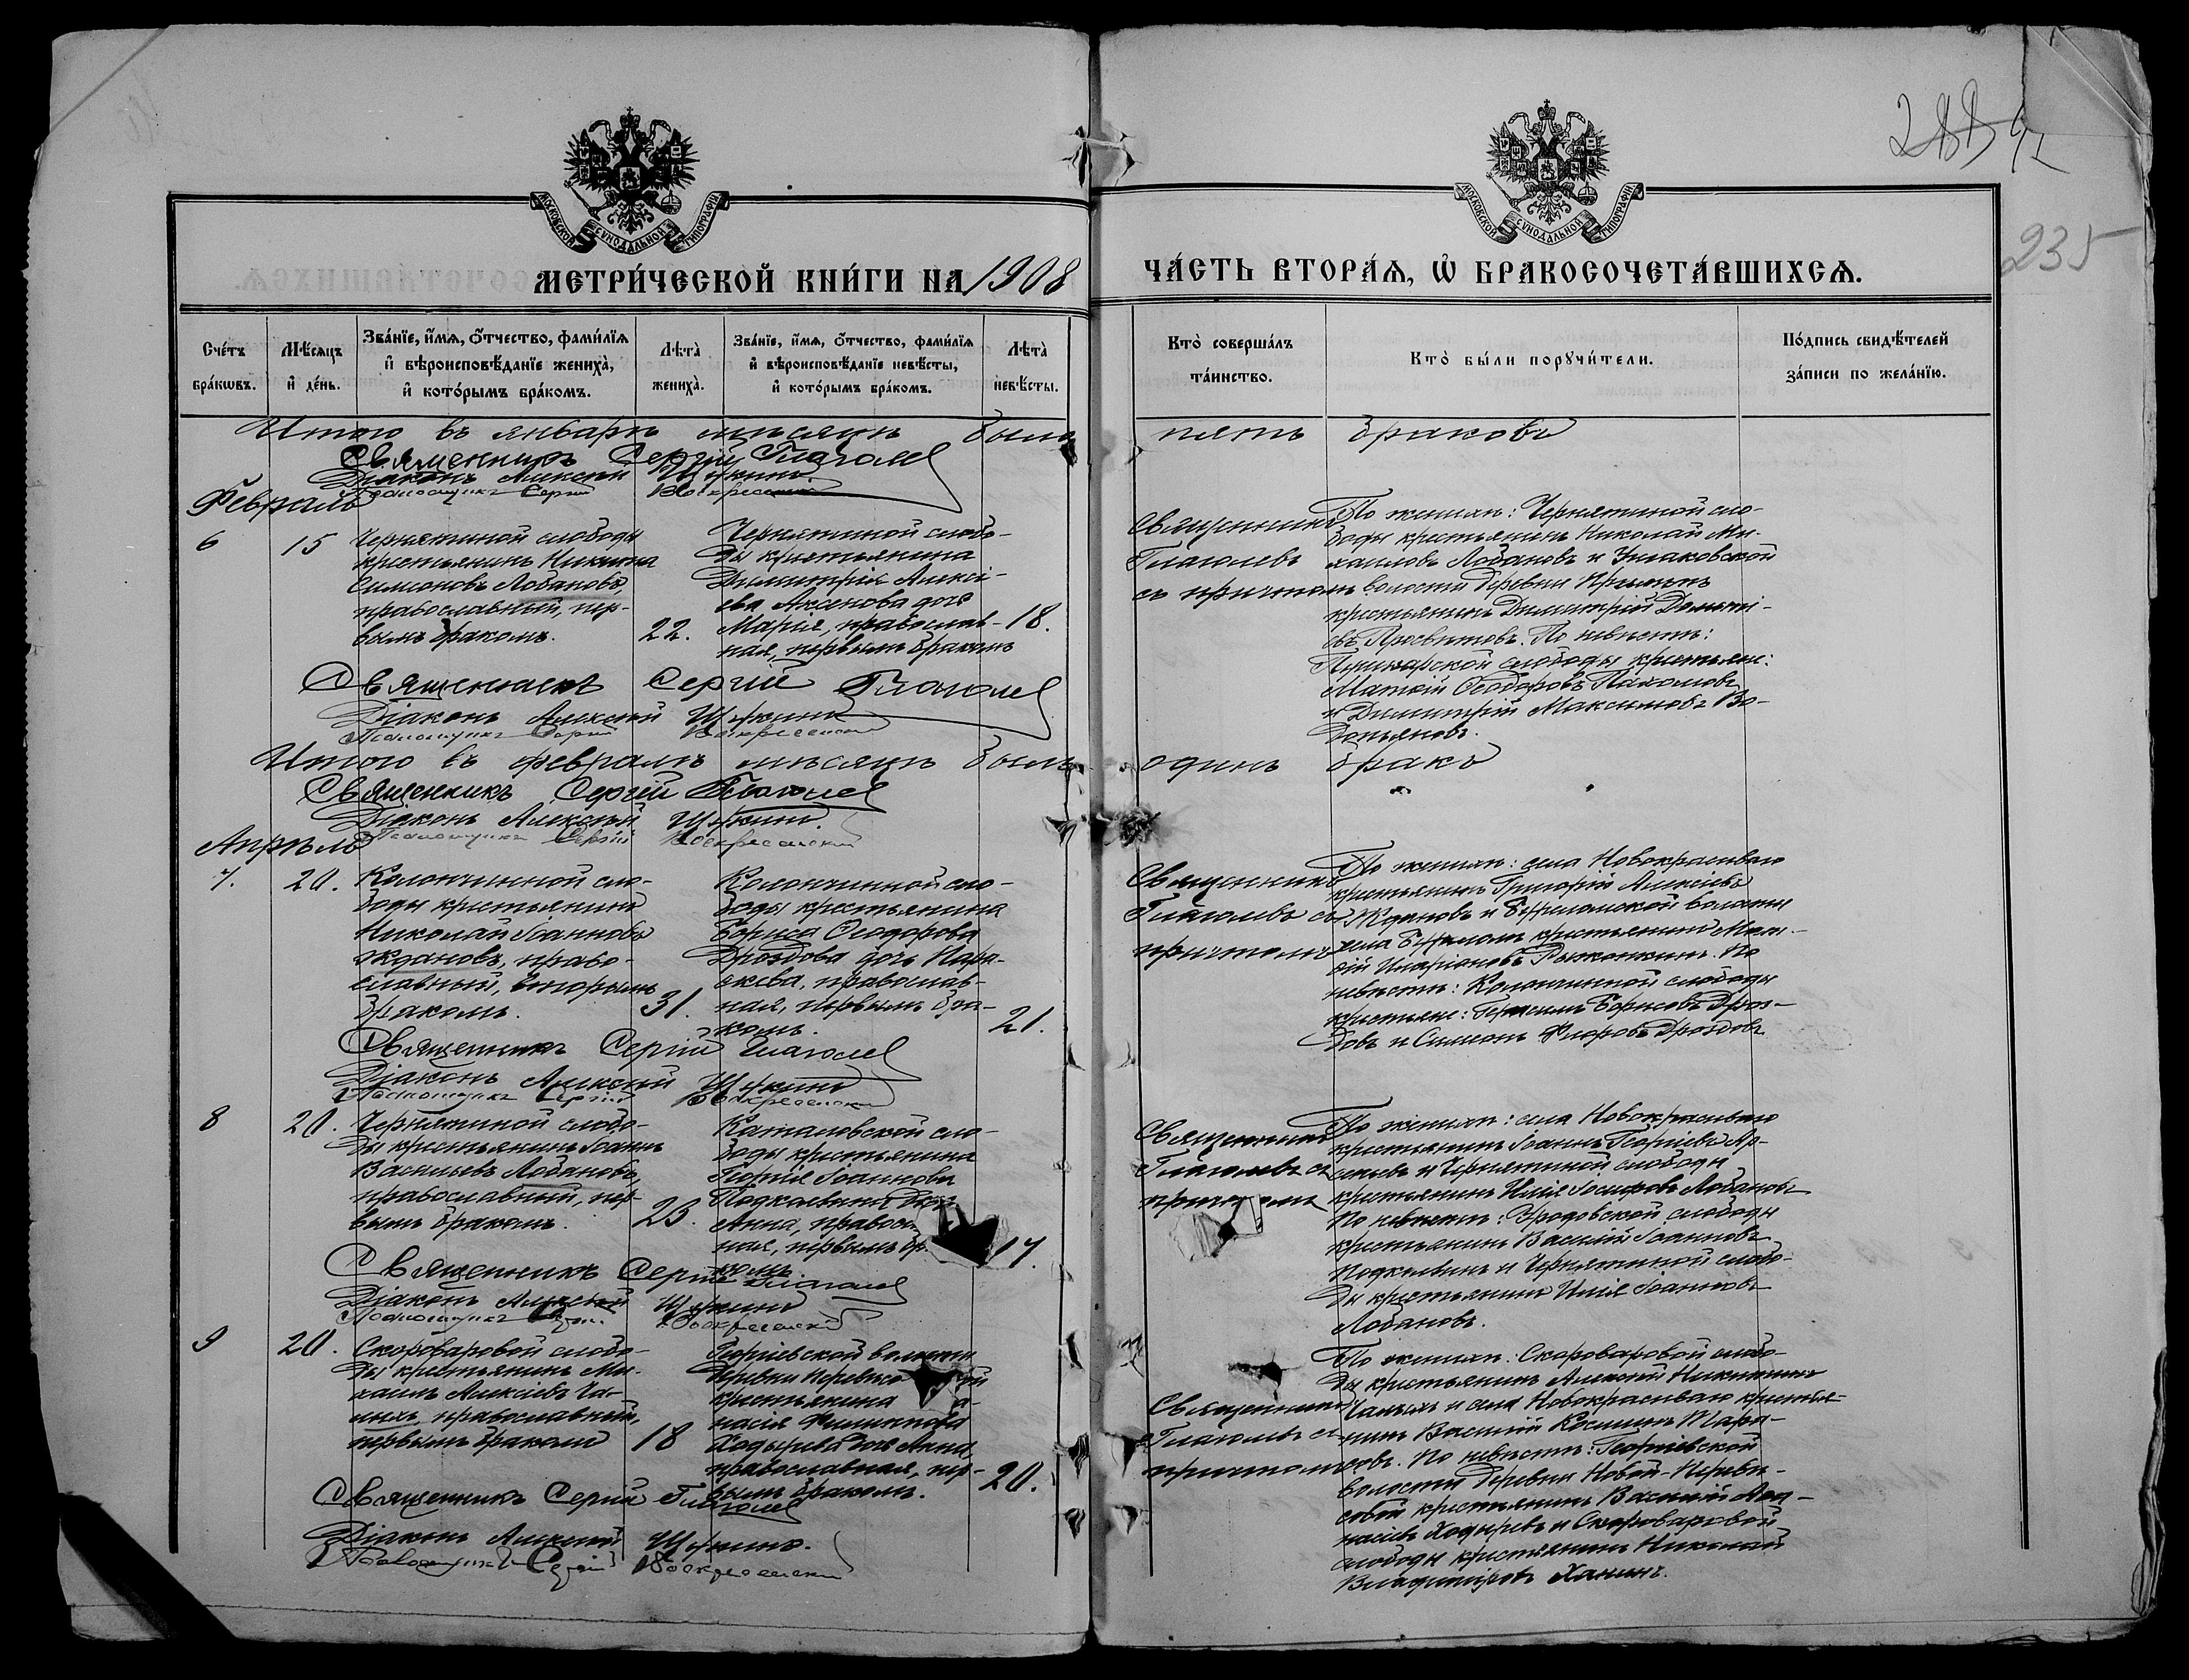 288 92
235
МОСКОВСКОЙ СУНОДАЛЬНОЙ ТИПОГРАФІИ
МОСКОВСКОЙ СУНОДАЛЬНОЙ ТИПОГРАФІИ
МЕТРИ́ЧЕСКОЙ КНИ́ГИ НА 1908
ЧА́СТЬ ВТОРА́Ѧ, Ѽ БРАКОСОЧЕТА́ВШИХСѦ.
Сче́тъ
бра́кѡвъ.
Мѣ́сяцъ
и҆ де́нь.
Зва́нїе, и҆́мѧ, ѻ҆́тчество, фами́лїѧ
и҆ вѣроисповѣ́данїе жениха̀,
и҆ кото́рымъ бра́комъ.
Лѣта̀
жениха̀.
Зва́нїе, и҆́мѧ, ѻ҆́тчество, фами́лїѧ
и҆ вѣроисповѣ́данїе невѣ́сты,
и҆ кото́рымъ бра́комъ.
Лѣта̀
невѣ́сты.
Кто̀ соверша́лъ
та́инство.
Кто̀ бы́ли порꙋчи́тели.
По́дпись свидѣ́телей
за́писи по жела́нїю.
Итого въ январѣ мѣсяцѣ было пять браковъ
Священникъ Сергій Глаголев
Діаконъ Алексѣй Щукинъ
Псаломщикъ Сергій Воскресенскій
Февраль
6
15
Чернятиной слободы
крестьянинъ Никита
Симоновъ Лобановъ,
православный, пер-
вымъ бракомъ.
22.
Чернятиной слобо-
ды крестьянина
Димитрія Алексі-
ева Аксенова дочь
Марія, православ-
ная, первымъ бракомъ
18.
Священникъ
Глаголевъ
съ причтомъ
По женихѣ: Чернятиной сло-
боды крестьянинъ Николай Ми-
хаиловъ Лобановъ и Ушаковской
волости деревни
крестьянинъ Димитрій Дементі-
евъ Просвѣтовъ. По невѣстѣ:
Пушкарской слободы крестьяне:
Матѳій Ѳеодоровъ Пахомовъ
и Димитрій Максимовъ Во-
допьяновъ.
Священникъ Сергій Глаголев
Діаконъ Алексѣй Щукинъ
Псаломщикъ Сергій Воскресенскій
Итого въ февралѣ мѣсяцѣ былъ одинъ бракъ
Священникъ Сергій Глаголев
Діаконъ Алексѣй Щукинъ.
Псаломщикъ Сергій Воскресенскій
Апрѣль
7.
20.
Колончинной сло-
боды крестьянинъ
Николай Іоанновъ
Ждановъ, право-
славный, вторымъ
бракомъ.
31.
Колончинной сло-
боды крестьянина
Бориса Ѳеодорова
Дроздова дочь Пара-
скева, православ-
ная, первымъ бра-
комъ.
21.
Священникъ
Глаголевъ съ
причтомъ
По женихѣ: села Новокрасиваго
крестьянинъ Григорій Алексіевъ
Ждановъ и волости
села крестьянинъ Мат-
ѳій Иларіоновъ Рыжонкинъ. По
невѣстѣ: Колончинной слободы
крестьяне: Герасимъ Борисовъ Дроз-
довъ и Симеонъ Флоровъ Дроздовъ
Священникъ Сергій Глаголев
Діаконъ Алексѣй Щукинъ
Псаломщикъ Сергій Воскресенскій
8
20.
Чернятиной слобо-
ды крестьянинъ Іоаннъ
Васильевъ Лобановъ,
православный, пер-
вымъ бракомъ.
23.
слo-
боды крестьянина
Георгія Іоаннова
дочь
Анна, правосл
ная, первымъ бр.
комъ
17.
Священникъ
Глаголевъ съ
причтомъ
По женихѣ: села Новокрасиваго
крестьянинъ Іоаннъ Георгіевъ Ар-
сеньевъ и Чернятиной слободы
крестьянинъ Илія Іосифовъ Лобановъ
По невѣстѣ: слободы
крестьянинъ Василій Іоанновъ
и Чернятиной слобо-
ды крестьянинъ Илія Іоанновъ
Лобановъ.
Священникъ Сергій Глаголев
Діаконъ Алексѣй Щукинъ
Псаломщикъ Сергій Воскресенскій
9
20.
Скороваровой слобо-
ды крестьянинъ Ми-
хаилъ Алексіевъ Ча-
лыхъ, православный,
первымъ бракомъ
18
Георгіевской волости
деревни
крестьянина а-
насія Филиппова
Ходырева дочь Анна,
православная, пер-
вымъ бракомъ.
20.
Священникъ
Глаголевъ съ
причтомъ
По женихѣ: Скороваровой слобо-
ды крестьянинъ Алексій Никитинъ
Чалыхъ и села Новокрасиваго крестья-
нинъ Василій Косминъ Тара-
совъ. По невѣстѣ: Георгіевской
волости деревни Новой-
крестьянинъ Василій Аѳа-
насіевъ Ходыревъ и Скороваровой
слободы крестьянинъ Николай
Владиміровъ Ханинъ.
Священникъ Сергій Глаголев
Діаконъ Алексѣй Щукинъ.
Псаломщикъ Сергій Воскресенскій